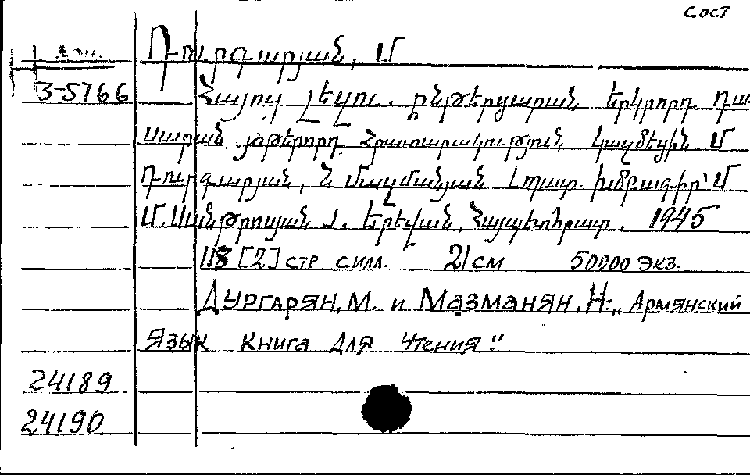 Сост
Դուրգարյան, Մ
3-5766
Հայոց լեզու. ընթերցարան երկրորդ դա
սարան յոթերորդ հրատարակություն կազմեցին Մ
Դուրգարյան, Ն Մազմանյան Լոպատ. խմբագիր՝ Մ
Մ. Սանթրոսյան Յ. Երևան, Հայպետհրատ. 1945
118 [2] стр силл. 21 см 50000 экз.
Дургарян, М. и Мазманян, Н: „Армянский
язык книга для чтения"
24189
24190